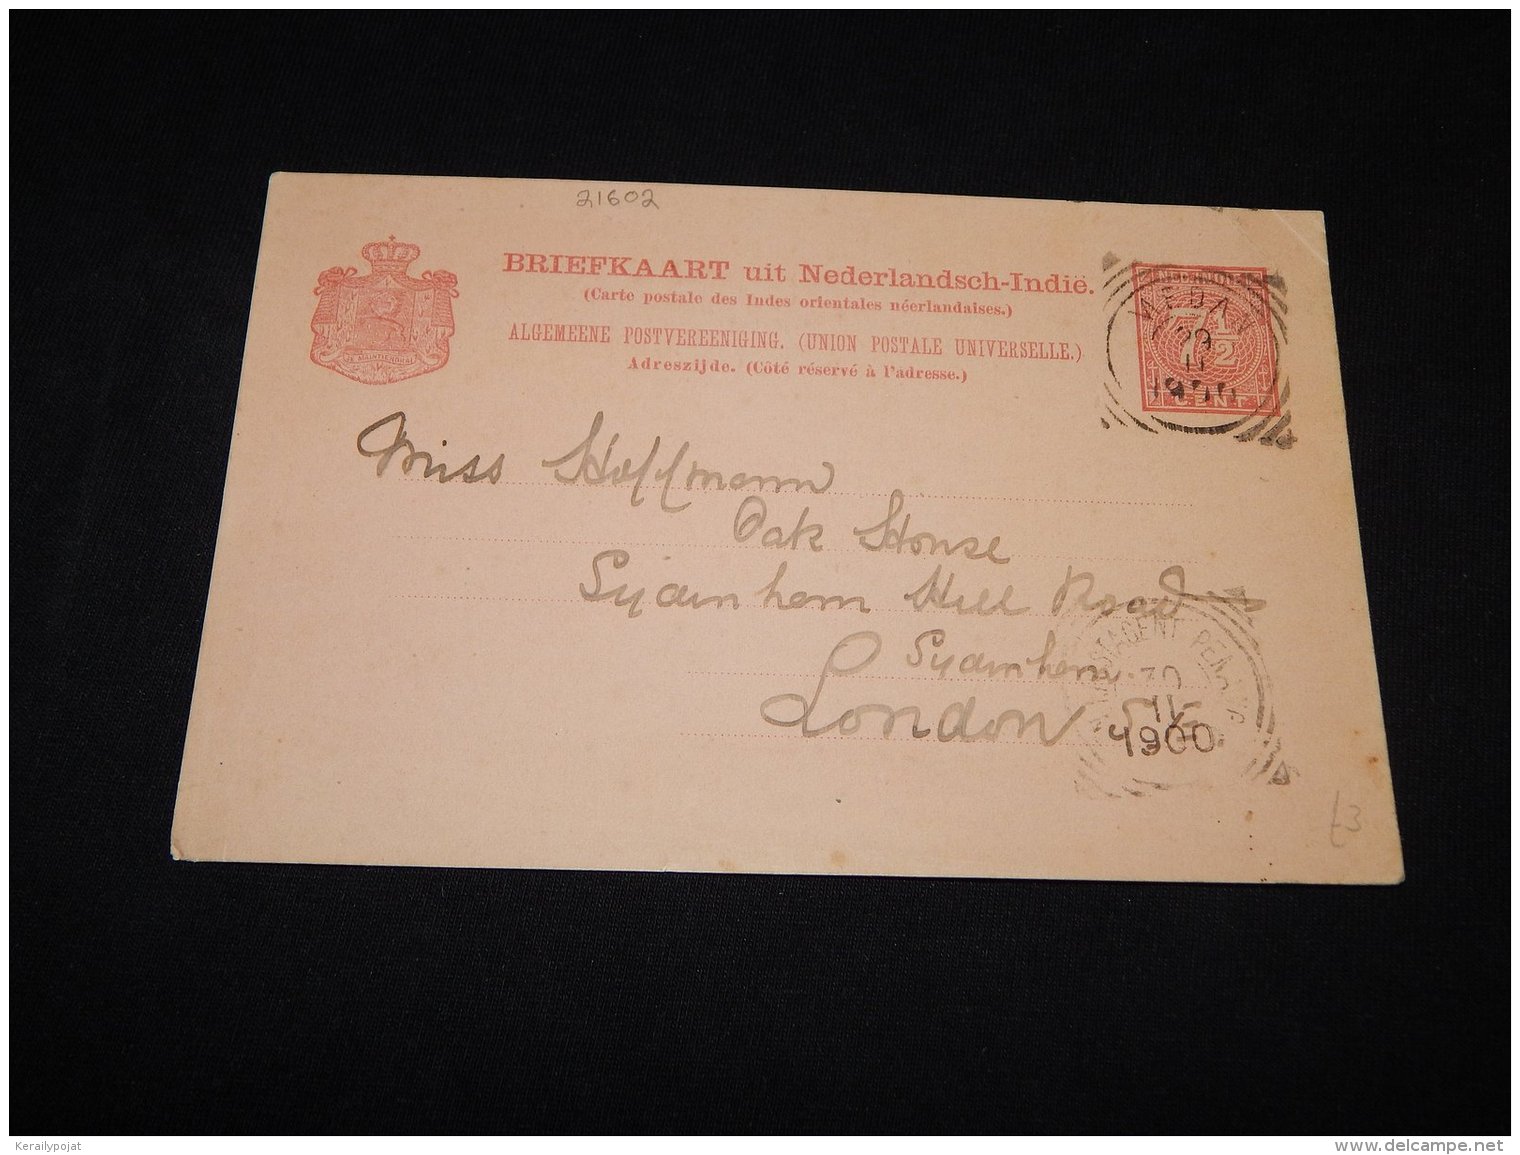 21602
BRIEFKAART uit Nederlandsch-Indië.
(Carte postale des Indes orientales néerlandaises.)
ALGEMEENE POSTVEREENIGING. (UNION POSTALE UNIVERSELLE.)
Adreszijde. (Côté réservé à l'adresse.)
JE MAINTIENDRAI
MEDAN
29
11
7 1/2
CENT
Miss Hoffmann
Oak House
Sydenham Hill Road
Sydenham
London
POSTAGENT PENANG
30
11
1900
£3
Kerailypojat
www.delcampe.net